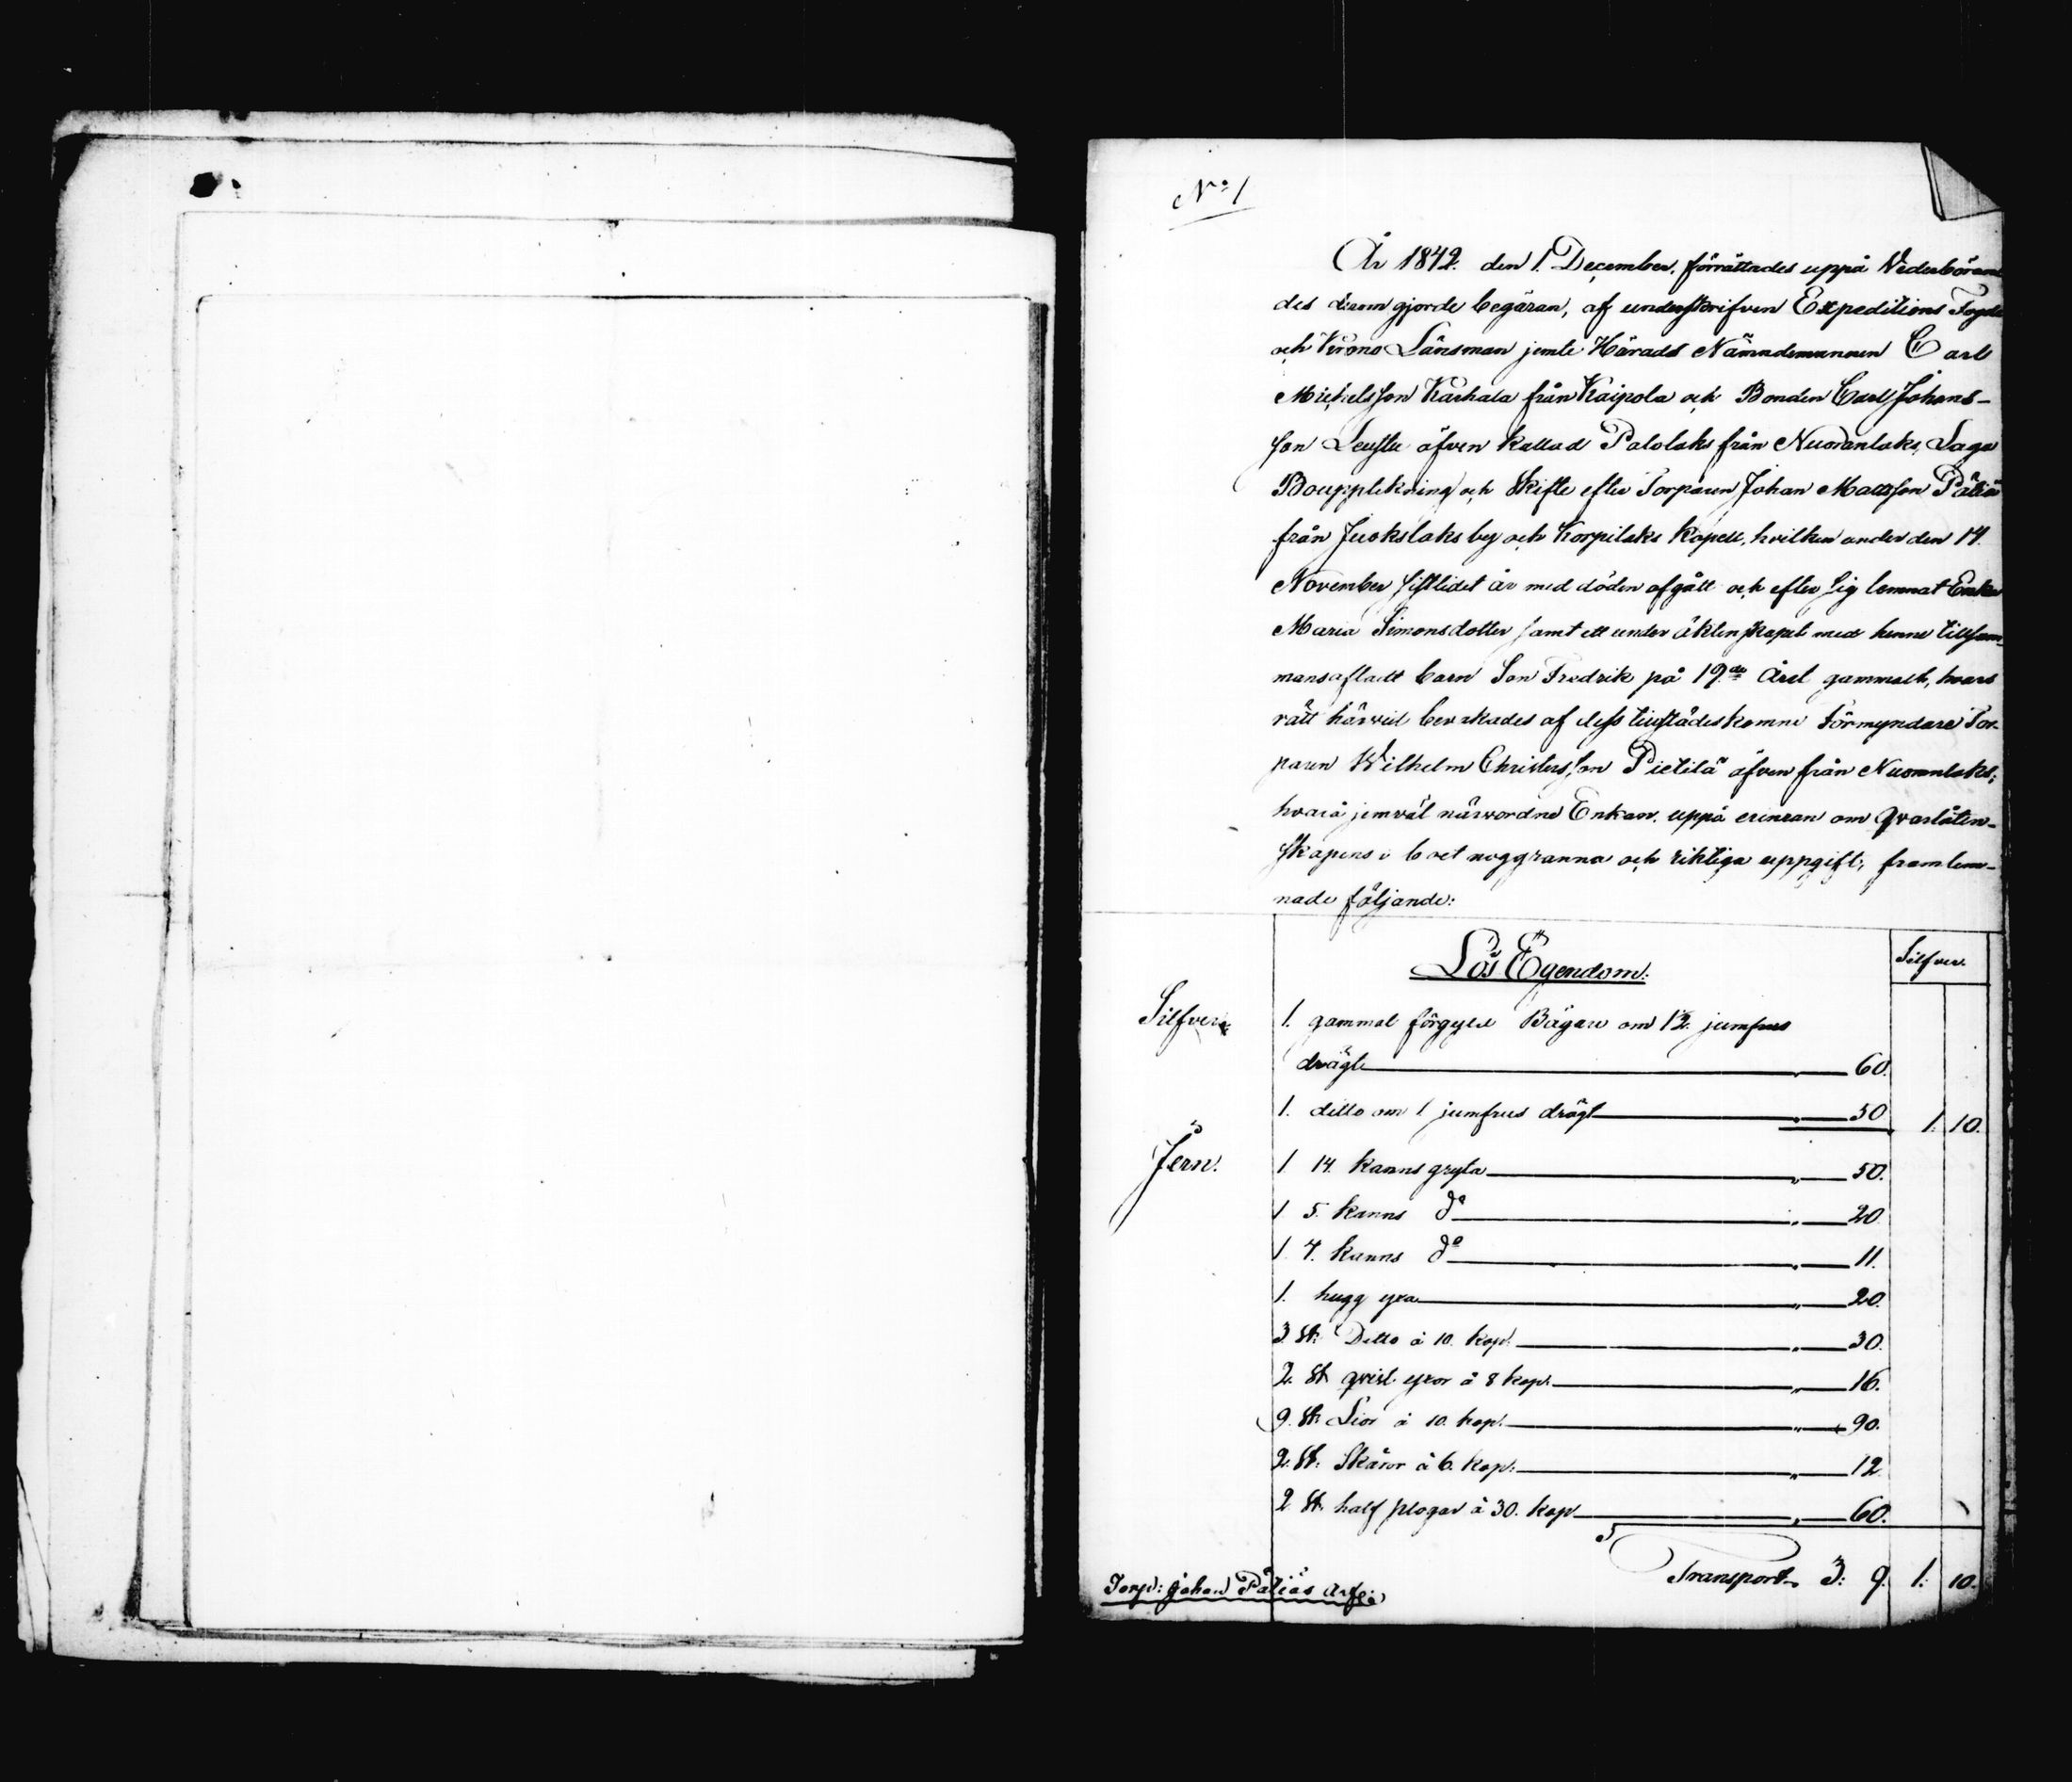 No 1
År 1842. den 1. December, förrättades uppå Wederböran
des derom gjorde begäran, af underskrifven Expeditions Fogde
och Krono Länsman jemte Härads Nämndemannen Carl
Michelsson Karhala från Kaipola och Bonden Carl Johans-
son Leustu äfven kallad Palolaks från Nuoranlaks, Laga
Bouppteckning och Skifte efter Torparen Johan Mattsson Pätiä
från Juokslaks by och Korpilaks kapell, hvilken under den 14.
November sistlidet år med döden afgått och efter sig lemnat Enka
Maria Simonsdotter samt ett under äktenskapet med henne tillsam-
mansafladt barn Son Fredrik på 19de året gammalt, hvars
rätt härvid bevakades af dess tillstädeskomne Förmyndare Tor-
paren Wilhelm Christersson Pietilä äfven från Nuoranlaks;
hvarå jemväl närvordne Enkan, uppå erinran om qvarlåten-
skapens i boet noggranna och riktiga uppgift, framlem-
nade följande:
Lös Egendom:
Silfver.
Silfver
1. gammal förgyld Bägare om 1½ jumfrus
drägt " 60.
1. ditto om 1 jumfrus drägt " 50 1. 10.
Jern.
1 14. kanns gryta " 50.
1 5. kanns do " 20
1 4. kanns do " 11.
1. hugg yxa " 20.
3 St. Ditto à 10. kop. " 30.
2. St qvist yxor à 8 kop. " 16.
9. St Lior à 10. kop. " 90.
2. St. Skäror à 6. kop. " 12
2 St. half plogar à 30. kop " 60.
Transport 3: 9. 1: 10.
Torp: Johan Pätiäs Arfe: